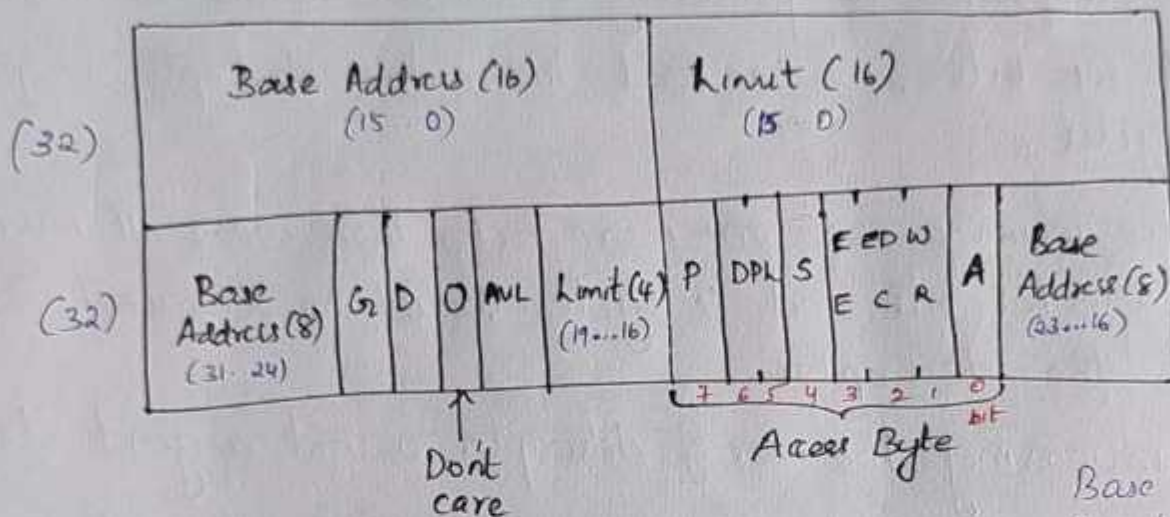 Base Address (16)
(15..0)
Limit (16)
(15..0)
(32)
(32)
Base
Address(8)
(31..24)
G
D
0
AVL
Limit(4)
(19...16)
P
DPL
S
E ED W
E C R
A
Base
Address(8)
(23...16)
7 6 5 4 3 2 1 0
bit
Access Byte
Don't
care
Base